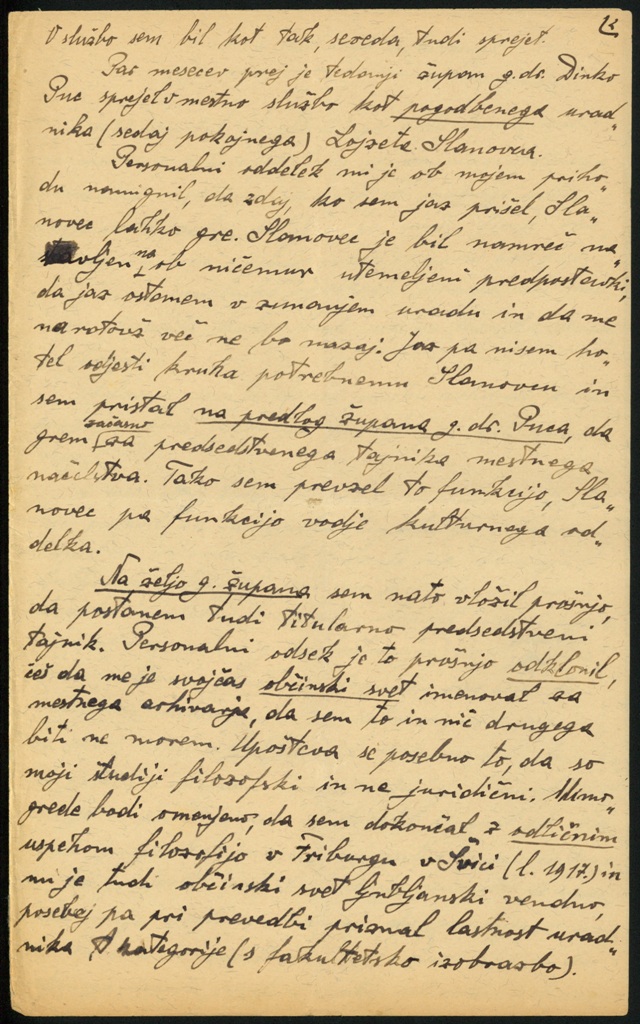 2
V službo sem bil kot tak, seveda, tudi sprejet.
Par mesecev prej je tedanji župan g. dr. Dinko
Puc sprejel v mestno službo kot pogodbenega urad„
nika (sedaj pokojnega) Lojzeta Slanovca.
Personalni oddelek mi je ob mojem priho„
du namignil, da zdaj, ko sem jaz prišel, Sla„
novec lahko gre. Slanovec je bil namreč na„
stavljen na ob ničemur utemeljeni predpostavki,
da jaz ostanem v zunanjem uradu in da me
na rotovž več ne bo nazaj. Jaz pa nisem ho„
tel odjesti kruha potrebnemu Slanovcu in
sem pristal na predlog župana g. dr. Puca, da
grem začasno za predsedstvenega tajnika mestnega
načelstva. Tako sem prevzel to funkcijo, Sla„
novec pa funkcijo vodje kulturnega od„
delka.
Na željo g. župana sem nato vložil prošnjo,
da postanem tudi titularno predsedstveni
tajnik. Personalni odsek je to prošnjo odklonil,
češ da me je svojčas občinski svet imenoval za
mestnega arhivarja, da sem to in nič drugega
biti ne morem. Upošteva se posebno to, da so
moji študiji filozofski in ne juridični. Mimo„
grede bodi omenjeno, da sem dokončal z odličnim
uspehom filozofijo v Friburgu v Švici (l. 1917.) in
mi je tudi občinski svet ljubljanski vendno,
posebej pa pri prevedbi priznal lastnost urad„
nika A kategorije (s fakultetsko izobrazbo).